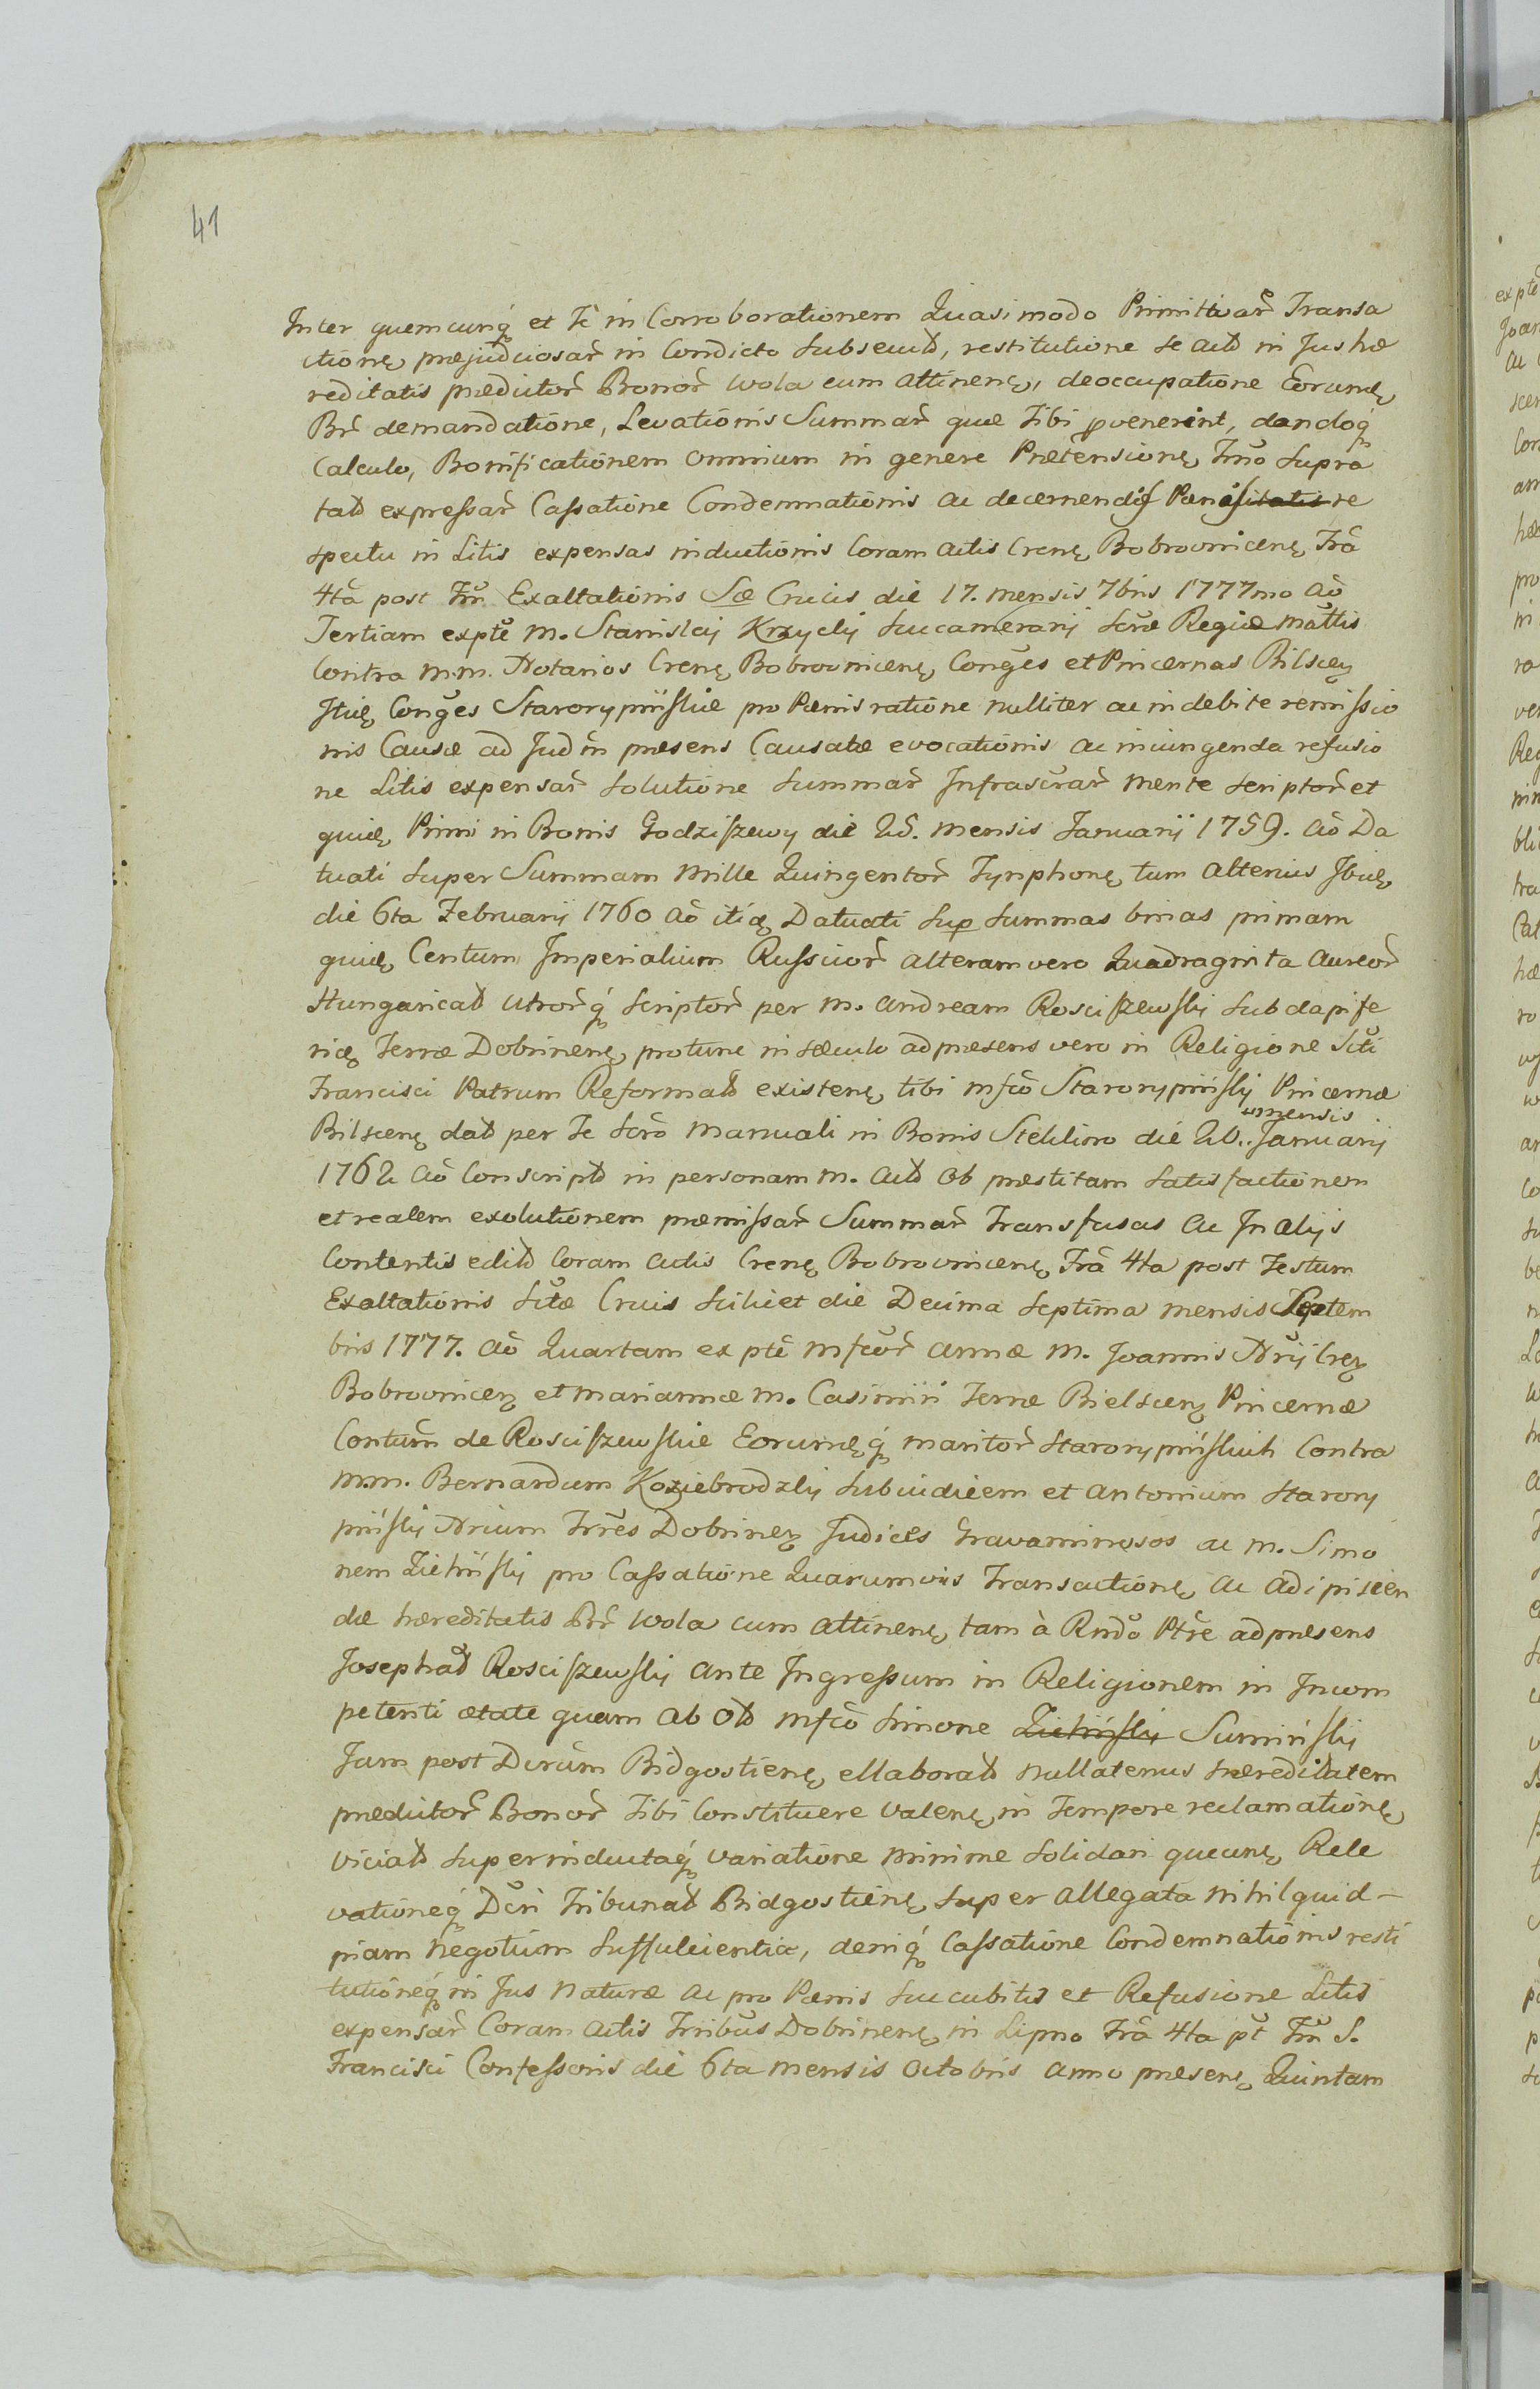 41
Inter quemcunq́ et Te in Corroborationem Quasimodo Primitivar̃ Transa
ctionę præjudiciosar̃ in Condicto Subsecut̃, restitutione se act̃ in Jus hæ
reditatis prædictor̃ Bonor̃ Wola cum attinenę, deoccupatione Eorundę
Br̃ demandatione, Levationis Summar̃ quæ Tibi pvenerint, dandoq́
Calculo, Bonificationem omnium in genere Prætensionę, Imo Supra
tat̃ expressar̃ Cassatione Condemnationis ac decernendis Pænis re
spectu in Litis expensas inductionis Coram actis Crenę Bobrovnicenę Frã
4tã post Fm̃ Exaltationis Sæ Crucis die 17. mensis 7bris 1777mo Aõ
Tertiam exptẽ M. Stanislai Krzycki Succamerarij Scræ Regiæ Mattis
Contra M.M. Notarios Crenę Bobrovnicenę Conges et Pincernas Bilscen
Jtię Conges Starorypińskie pro Pænis ratione nulliter ac indebite remissio
nis Causæ ad Jud̃m præsens Causatæ evocationis ac iniungenda refusio
ne Litis expensar̃ Solutione Summar̃ Infrascrar̃ mente Scriptor̃ et
quidę Primi in Bonis Godziszewy die 28. mensis Januarij 1759. Aõ Da
tuati Super Summam Mille Quingentor̃ Tynphonę tum alterius Ibidę
die 6ta Februarij 1760 aõ itię Datuati Sup Summas binas primam
quidę Centum Imperialium Russicor̃ alteram vero Quadraginta Aureor̃
Hungaricat̃ utrorq́ Scriptor̃ per M. Andream Rosciszewski Subdapife
rię Terræ Dobrinenę protunc in Sæculo ad præsens vero in Religione Scti
Francisci Patrum Reformat̃ existenę tibi Mfcõ Starorypińskij Pincernæ
Bilscenę dat̃ per Te Scrõ Manuali in Bonis Steklino die 20. mensis Januarij
1762 aõ Conscript̃ in personam M. Act̃ ob præstitam Satisfactionem
et realem exolutionem præmissar̃ Summar̃ Transfusas ac In alijs
Contentis edit̃ Coram Actis Crenę Bobrovnicenę Frã 4ta post Festum
Exaltationis Sctæ Crucis Scilicet die Decima Septima mensis Septem
bris 1777. Aõ Quartam ex ptẽ Mfcor̃ Annæ M. Joannis Nrij Creñ
Bobrovniceñ et Mariannæ M. Casimiri Terræ Bielsceñ Pincernæ
Contum̃ de Rosciszewskie Eorumdęq́ maritor̃ Starorypińskich Contra
M.M. Bernardum Koziebrodzki Subiudicem et Antonium Starory
piński Nrium Trr̃es Dobrineñ Judices Gravaminosos ac M. Simo
nem Zieliński pro Cassatione Quarumvis Transactionę ac adipiscen
dæ hæreditatis Br̃ Wola cum attinenę tam à Rndo Ptre ad præsens
Josephat̃ Rosciszewski ante Ingressum in Religionem in Incom
petenti ætate quam ab Ot̃ Mfcõ Simone Zieliński Sumiński
Jam post Dcrũm Bidgostienę ellaborat̃ nullatenus hæreditatem
prædictor̃ Bonor̃ Tibi Constituere Valenę in Tempore reclamationę
Viciat̃ Superinductaq́ variatione minime Solidari quecunę Rele
vationeq́ Dcri Tribunat̃ Bidgostienę Super allegata nihil quid-
piam Negotium Suffulcientia, deniq́ Cassatione Condemnationis resti
tutioneq́ in Jus Naturæ ac pro Pænis Succubitis et Refusione Litis
expensar̃ Coram Actis Trribus Dobrinenę in Lipno Frã 4ta pt̃ Fm̃ S.
Francisci Confessoris die 6ta mensis Octobris anno præsenę Quintam